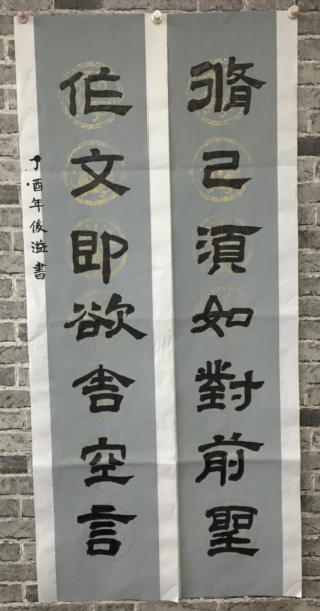 脩己須如對前聖
作文即欲舍空言
丁酉年俊溢書